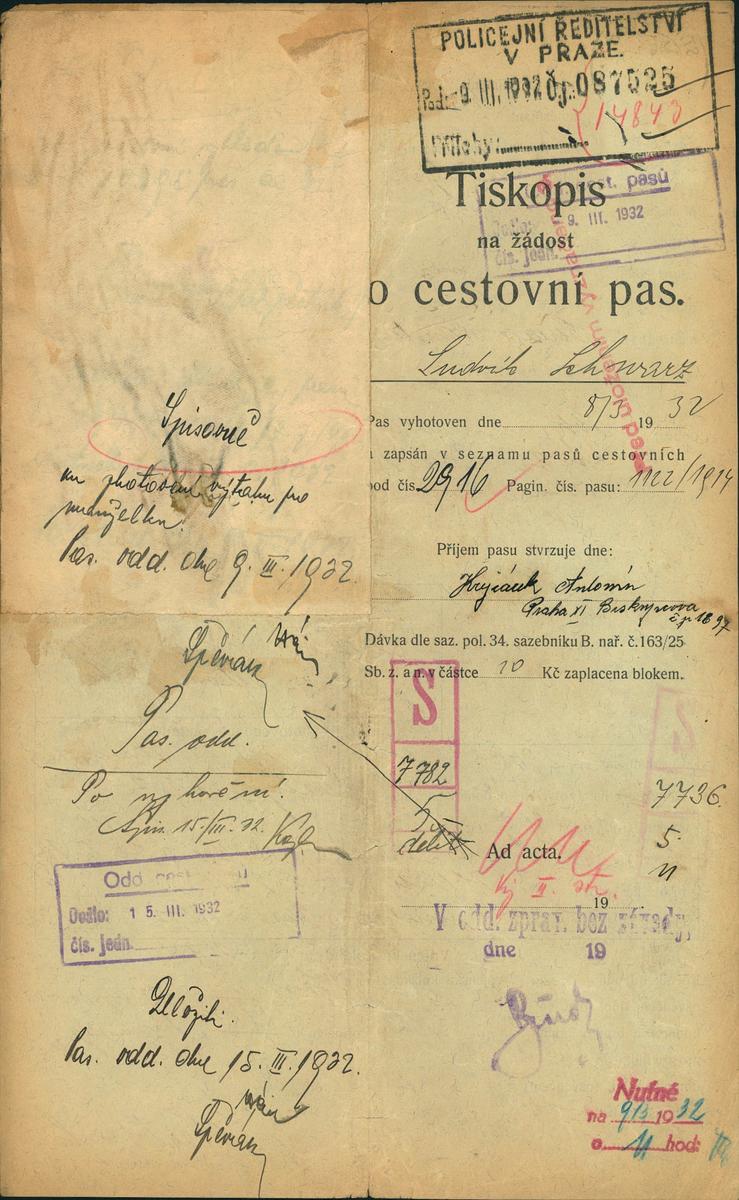 POLICEJNÍ ŘEDITELSTVÍ
V PRAZE.
9. III. 1932 Čj. 087525
14843
Přílohy:
Tiskopis
cest. pasů
Došlo: 9. III. 1932
čís. jedn.
na žádost
o cestovní pas.
Ludvík Schwarz
Pas vyhotoven dne 8/3 1932
a zapsán v seznamu pasů cestovních
pod čís. 2916 Pagin. čís. pasu: 1122/1914
Příjem pasu stvrzuje dne:
Antonín
Praha XI
čp 1897
Dávka dle saz. pol. 34. sazebníku B. nař. č. 163/25
Sb. z. a n. v částce 10 Kč zaplacena blokem.
S
7782
5
7736.
5.
Ad acta.
II.
19
V odd. zprav. bez závady,
dne 19
Nutné
na 9/3 1932
o 11 hod:
Spisovně
výtahu pro
manželku.
Pas. odd. dne 9. III. 1932.
Pas. odd.
Po vyhovění.
15/III. 32.
Odd.
Došlo: 15. III. 1932
čís. jedn.
Pas. odd. dne 15. III. 1932.